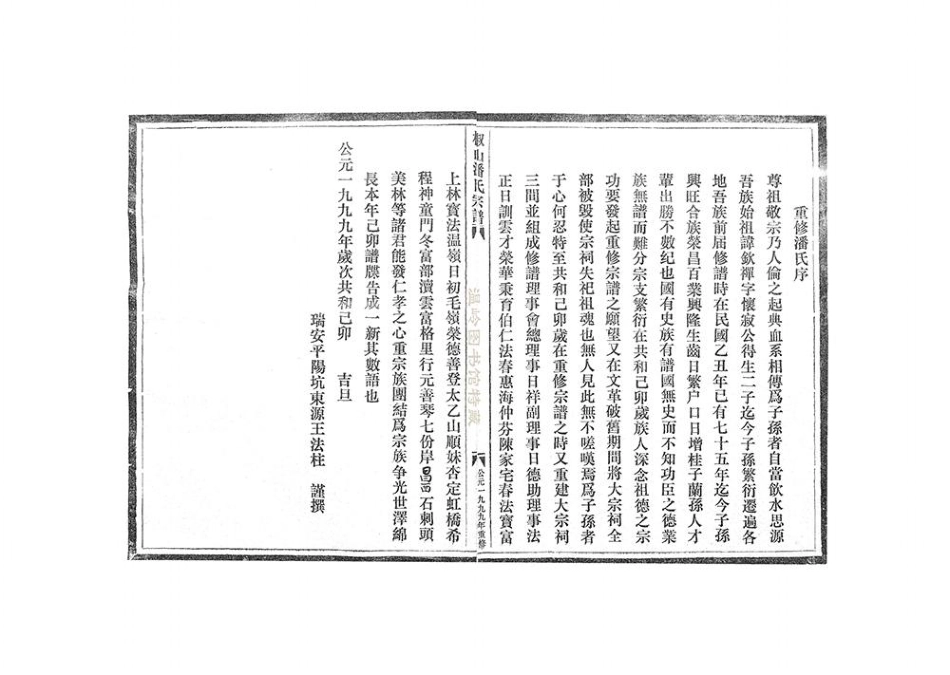 重修潘氏序
尊祖敬宗乃人倫之起典血系相傳爲子孫者自當飲水思源
吾族始祖諱欽禪字懷寂公得生二子迄今子孫繁衍遷遍各
地吾族前屆修譜時在民國乙丑年已有七十五年迄今子孫
興旺合族榮昌百業興隆生齒日繁户口日增桂子蘭孫人才
輩出勝不數紀也國有史族有譜國無史而不知功臣之德業
族無譜而難分宗支繁衍在共和己卯歲族人深念祖德之宗
功要發起重修宗譜之願望又在文革破舊期間將大宗祠全
部被毀使宗祠失祀祖魂也無人見此無不嗟嘆焉爲子孫者
于心何忍特至共和己卯歲在重修宗譜之時又重建大宗祠
三間並組成修譜理事會總理事日祥副理事日德助理事法
正日訓雲才榮華秉育伯仁法春惠海仲芬陳家宅春法寶富
椒山潘氏宗譜
公元一九九九年重修
上林寶法温嶺日初毛嶺榮德善登太乙山順妹杏定虹橋希
程神童門冬富部瀆雲富格里行元善琴七份岸昌石刺頭
美林等諸君能發仁孝之心重宗族團結爲宗族争光世澤綿
長本年己卯譜牒告成一新其數語也
公元一九九九年歲次共和己卯 吉旦
瑞安平陽坑東源王法柱 謹撰
温岭图书馆特藏